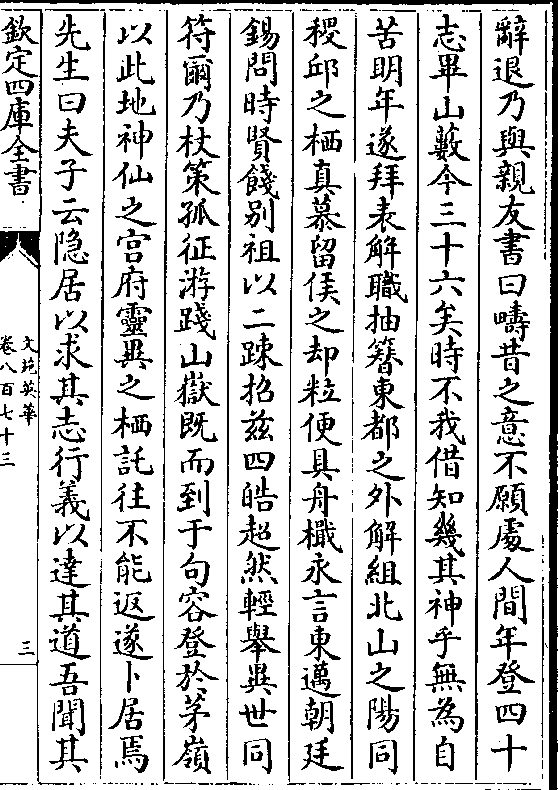 辭退乃與親友書曰疇昔之意不願處人間年登四十
志畢山藪今三十六矣時不我借知幾其神乎無為自
苦明年遂拜表解職抽簪東都之外解組北山之陽同
稷邱之栖真慕留侯之却粒便具舟檝永言東邁朝廷
錫問時賢餞别祖以二踈招兹四皓超然輕舉異世同
符爾乃杖策孤征游踐山嶽既而到于句容登於茅嶺
以此地神仙之宫府靈異之栖託往不能返遂卜居焉
先生曰夫子云隐居以求其志行義以達其道吾聞其
欽定四庫全書
文苑英華
卷八百七十三
三